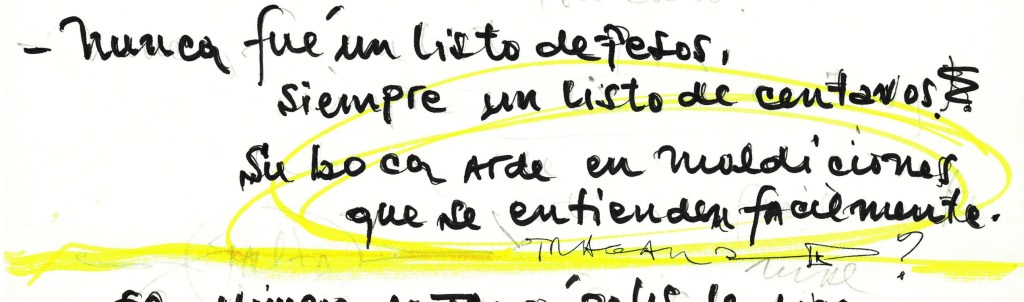 - Nunca fué un listo de pesos,
siempre un listo de centavos.
Su boca arde en maldiciones
que se entienden facilmente.
TRAGAN ?